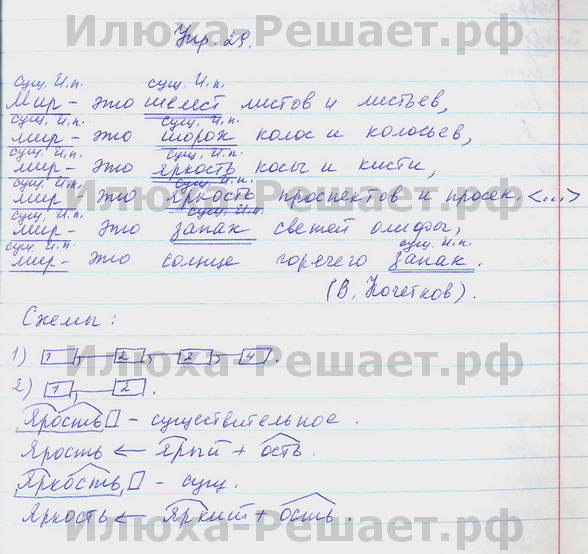 Илюха-Решает.рф
Упр. 29.
сущ. И.п. сущ. И.п.
Мир - это шелест листов и листьев,
сущ. И.п. сущ. И.п.
мир - это шорох колос и колосьев,
сущ. И.п. сущ. И.п.
мир - это яркость косы и кисти,
сущ. И.п. сущ. И.п.
мир - это яркость проспектов и просек. <...>
Илюха-Решает.рф
сущ. И.п. сущ. И.п.
мир - это запах свежей олифы,
сущ. И.п. сущ. И.п.
мир - это солнце горячего запах.
(В. Кочетков).
Схемы:
1) 1, 2, 3, 4.
Илюха-Решает.рф
2) 1, 2.
Ярость - существительное.
Ярость ← ярый + ость.
Яркость, - сущ.
Яркость ← яркий + ость.
Илюха-Решает.рф